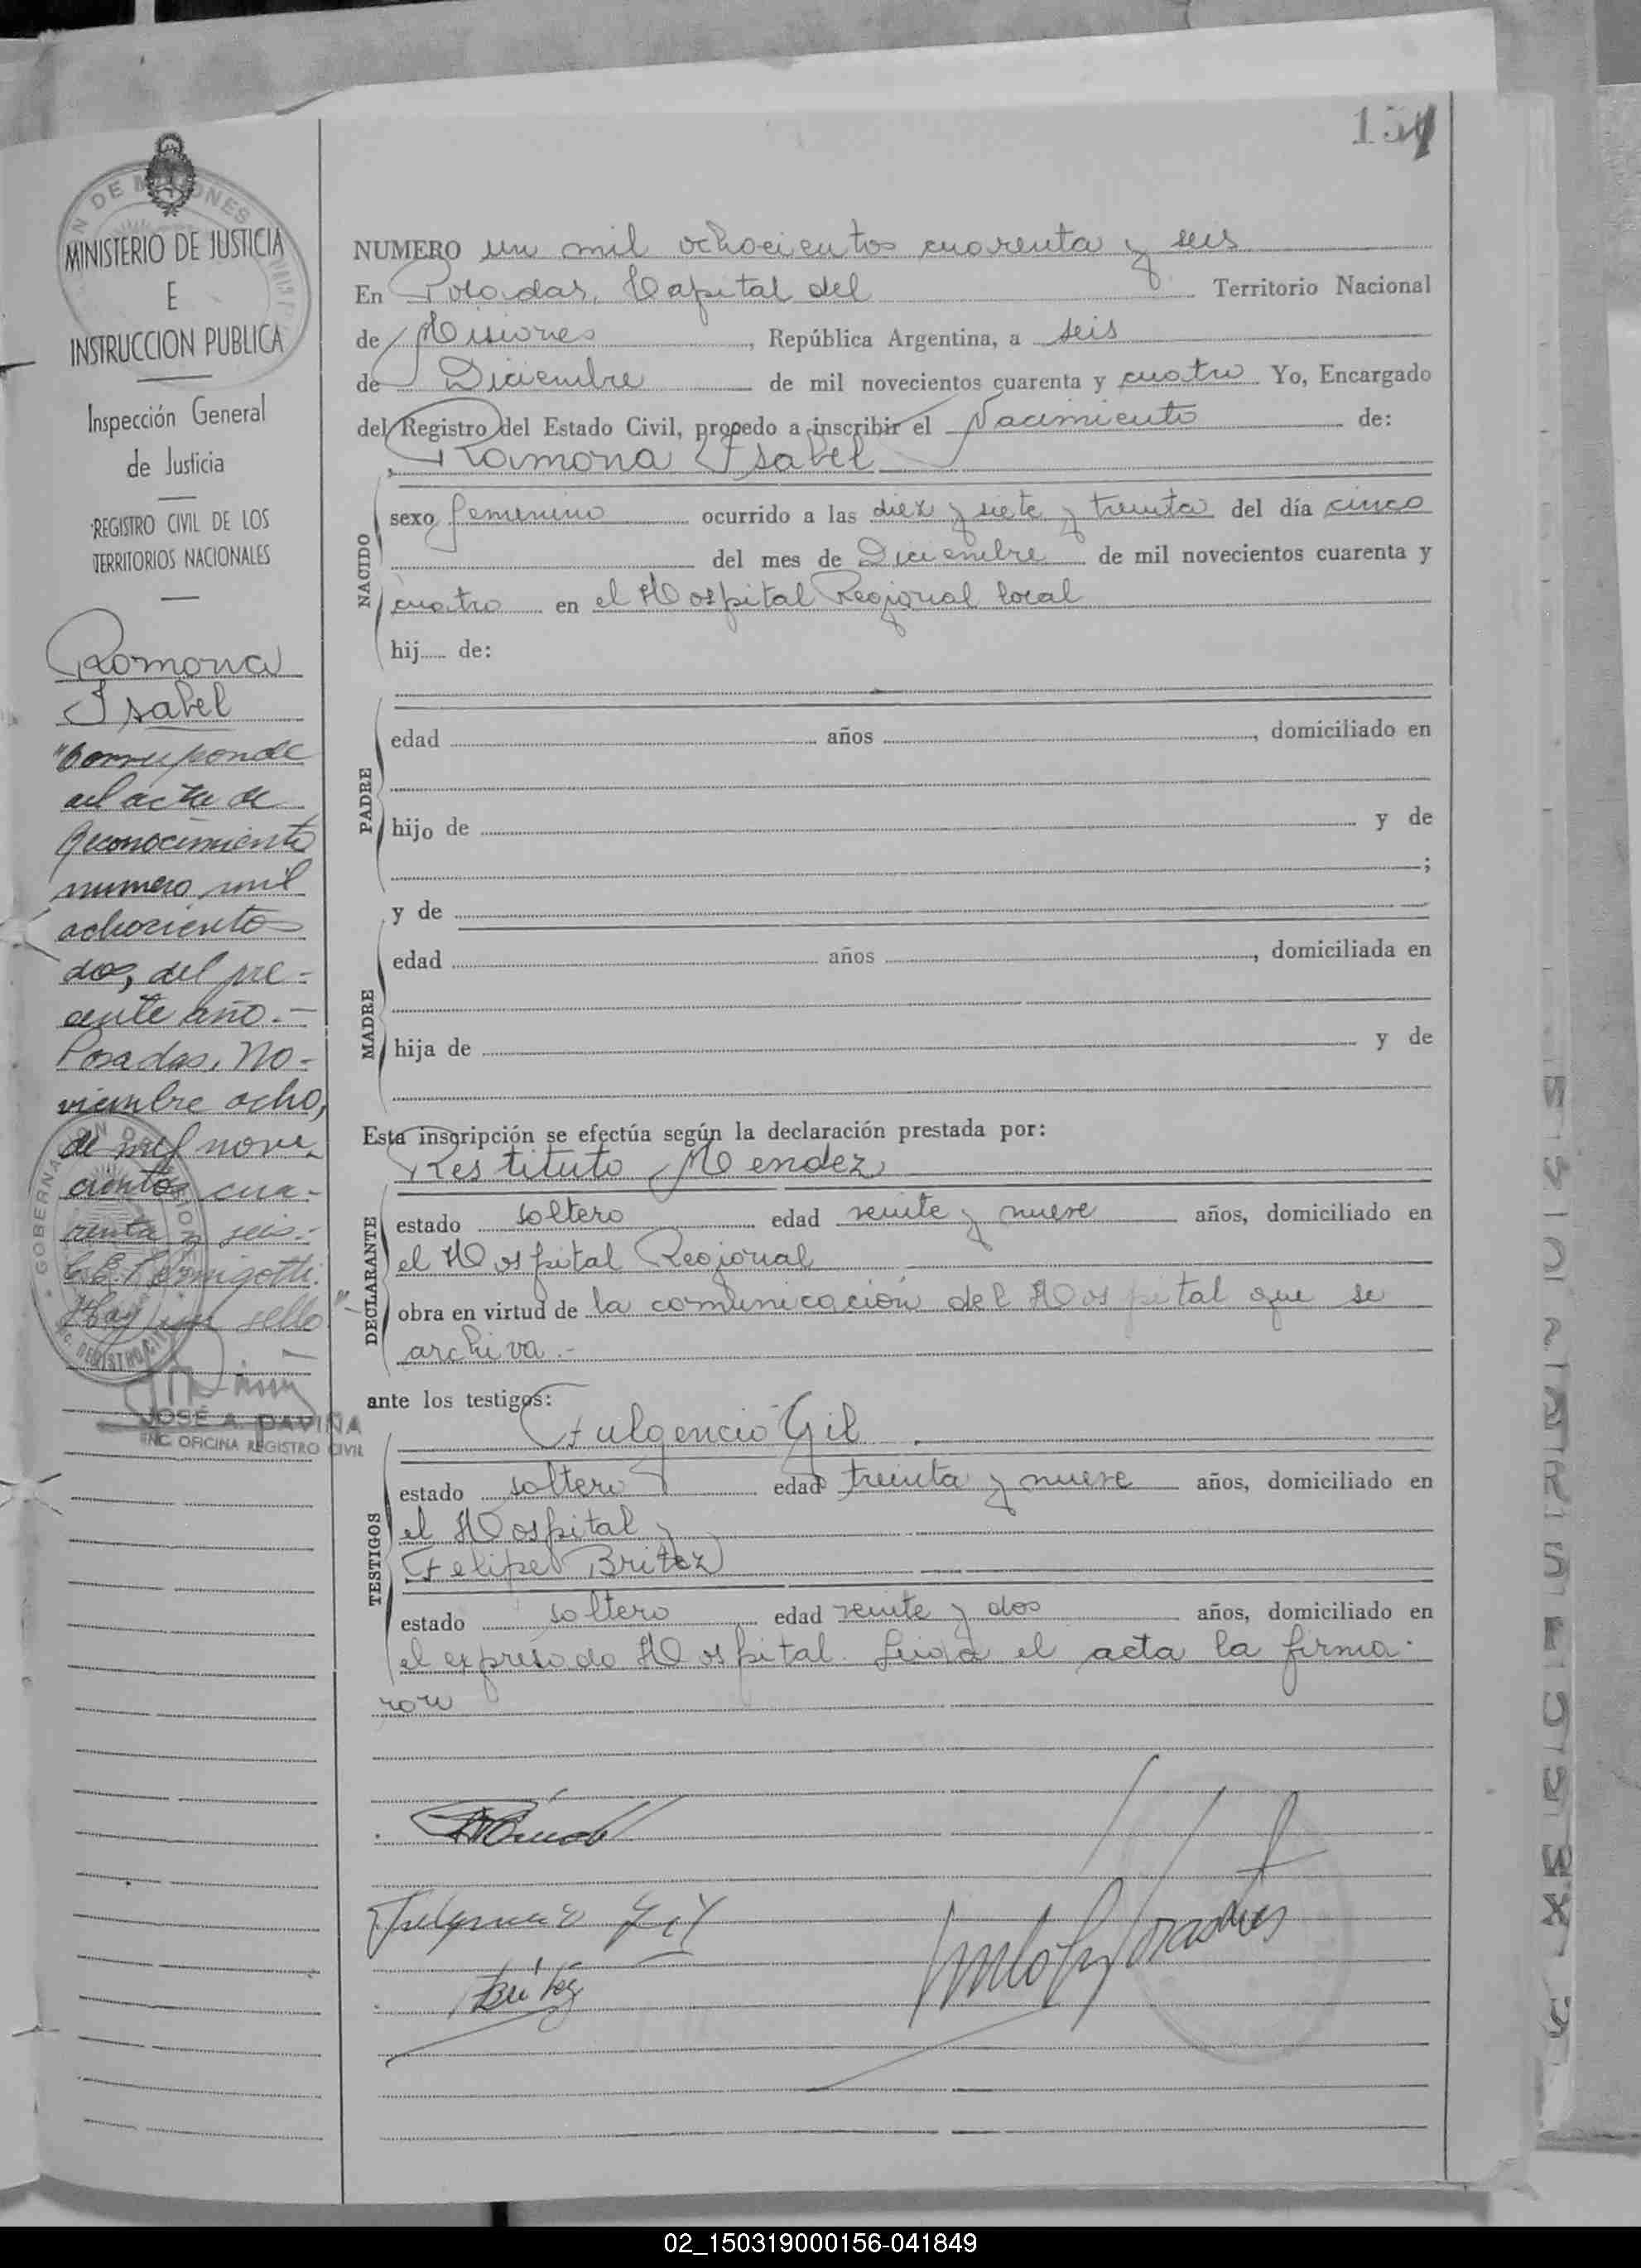 151
MINISTERIO DE JUSTICIA
E
INSTRUCCION PUBLICA
Inspección General
de Justicia
REGISTRO CIVIL DE LOS
TERRITORIOS NACIONALES
Ramona
Isabel
"Corresponde
al acta de
Reconocimiento
numero mil
ochociento
dos, del pre-
sente año.-
Posadas, No-
viembre ocho,
de mil nove-
cientos cua-
renta y seis.-
Hay un sello"
JOSÉ A. DAVIÑA
ENC. OFICINA REGISTRO CIVIL
NUMERO un mil ochocientos cuarenta y seis
En Posadas, Capital del Territorio Nacional
de Misiones, República Argentina, a seis
de Diciembre de mil novecientos cuarenta y cuatro Yo, Encargado
del Registro del Estado Civil, propedo a inscribir el Nacimiento de:
Ramona Isabel
NACIDO
sexo femenino ocurrido a las diez y siete y treinta del día cinco
del mes de Diciembre de mil novecientos cuarenta y
cuatro en el Hospital Regional local
hij de:
PADRE
edad años , domiciliado en
hijo de y de
;
y de
MADRE
edad años , domiciliada en
hija de y de
Esta inscripción se efectúa según la declaración prestada por:
Restituto Mendez
DECLARANTE
estado soltero edad veinte y nueve años, domiciliado en
el Hospital Regional
obra en virtud de la comunicación del Hospital que se
archiva.-
ante los testigos:
Fulgencio Gil
TESTIGOS
estado soltero edad treinta y nueve años, domiciliado en
el Hospital y
Felipe Britez
estado soltero edad veinte y dos años, domiciliado en
el expresado Hospital. Leida el acta la firma-
ron
Fulgencio Gil
Britez
02_150319000156-041849